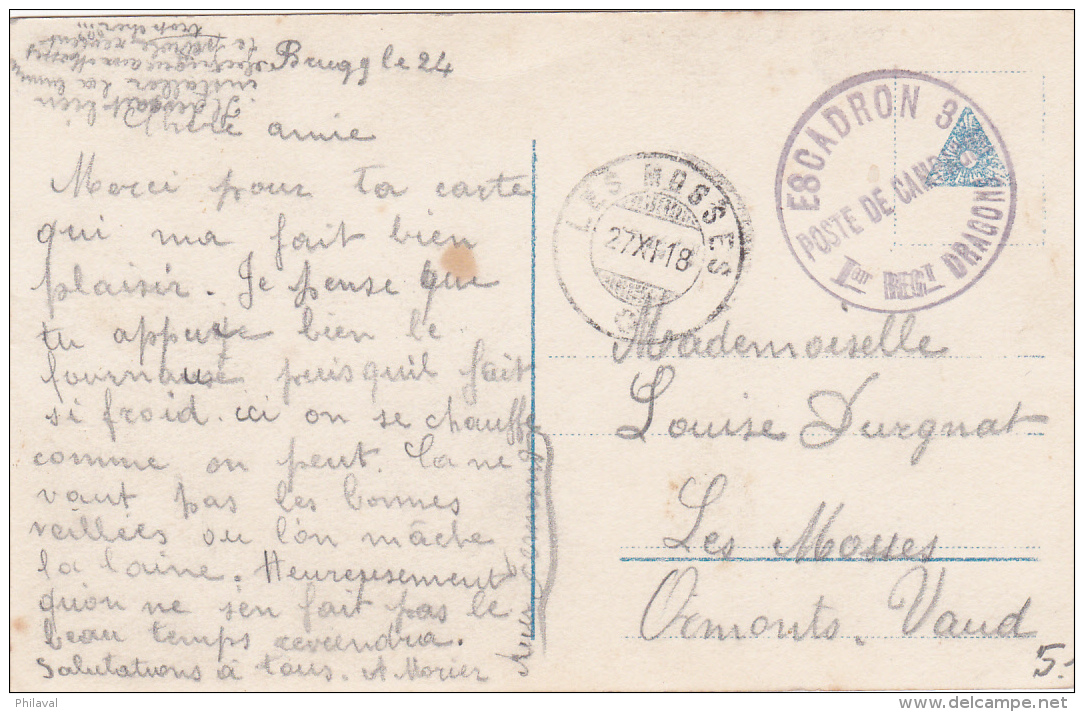 Brugg le 24
Il devrait bien
installer la lumière
électrique aux Mosses
le pétrole revient
trop cher !!!
Chère amie
Merci pour ta carte
qui ma fait bien
plaisir. Je pense que
tu appuye bien le
fournause puisquil fait
si froid. ici on se chauffe
comme on peut. Ca ne
vaut pas les bonnes
veillées ou l'on mâche
la laine. Heureusement
qu'on ne s'en fait pas le
beau temps reviendra.
Salutations à tous. A Morier
ESCADRON 3
POSTE DE CAMP
1er REGT DRAGON
LES MOSSES
27 XI 18
Mademoiselle
Louise Durgnat
Les Mosses
Ormonts. Vaud
5.-
Philaval
www.delcampe.net